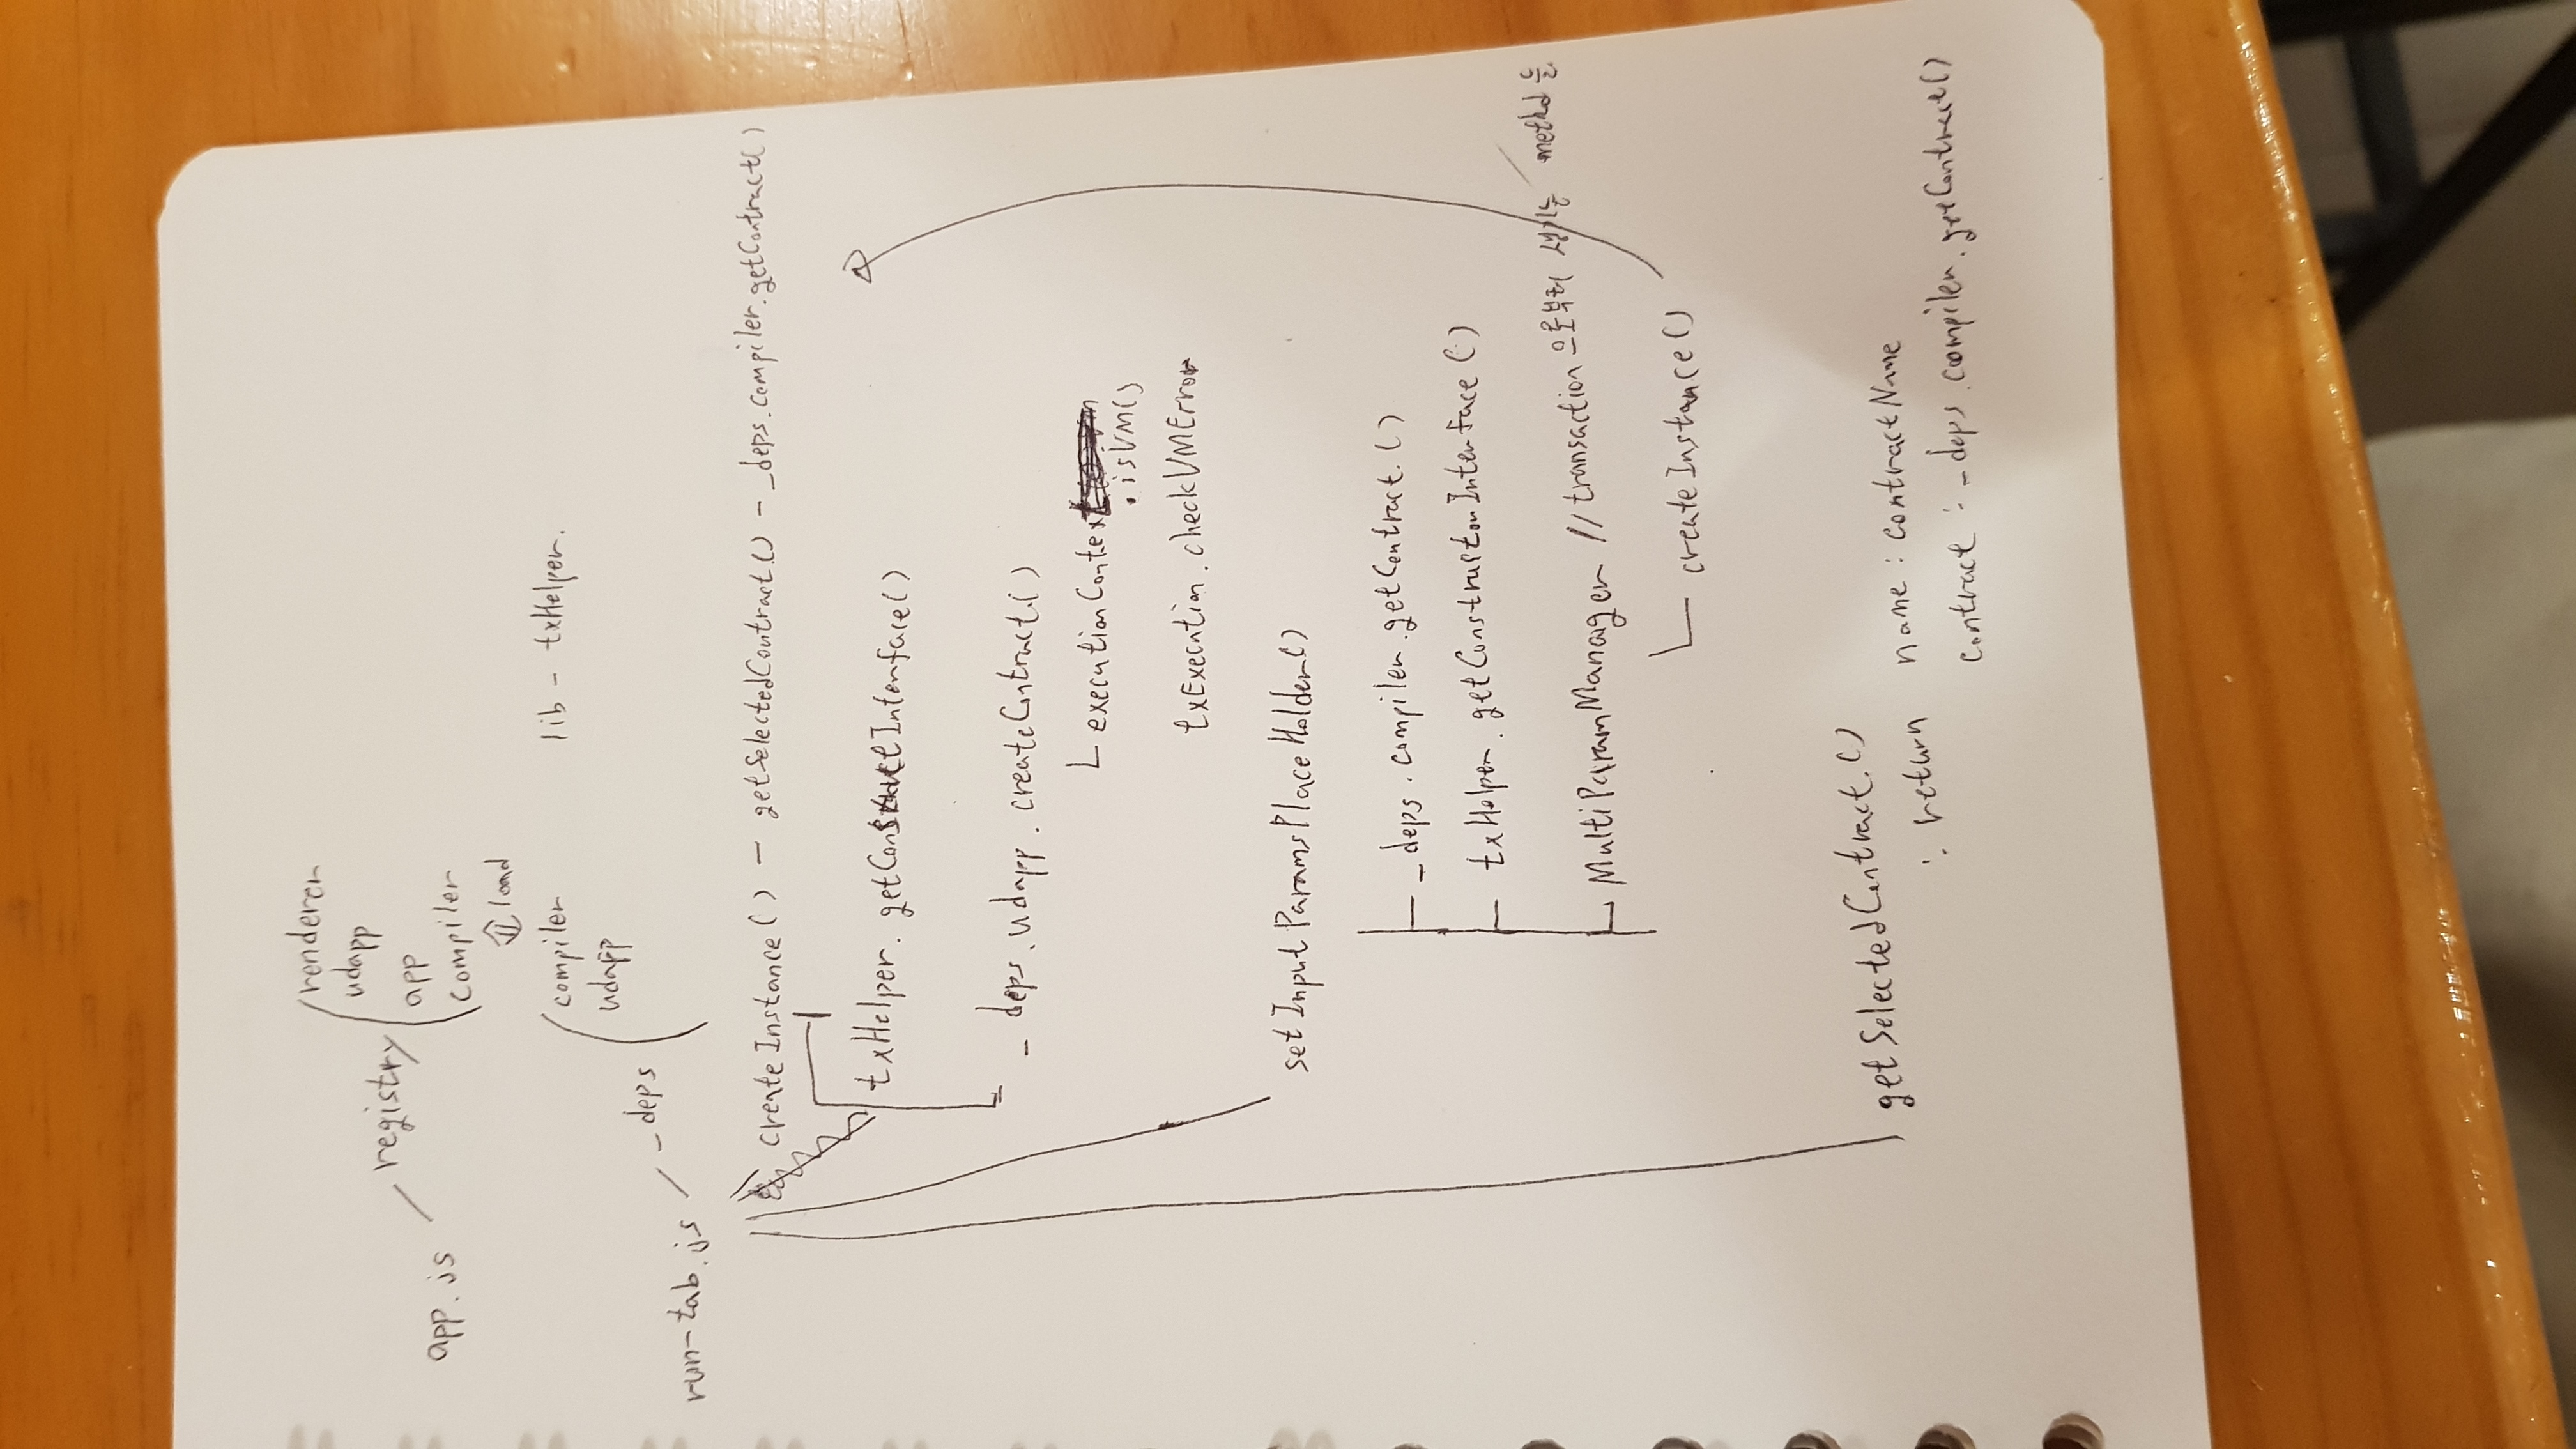 renderer
udapp
registry
app
app.js
compiler
load
compiler
lib - txHelper.
udapp
_deps
run-tab.js
createInstance() - getSelectedContract() - _deps.compiler.getContract()
txHelper.getConstructInterface()
_deps.udapp.createContract()
executionContext
.isVM()
txExecution.checkVMError
setInputParamsPlaceHolder()
_deps.compiler.getContract()
txHelper.getConstructorInterface()
MultiParamManager //transaction으로부터 생기는 method들
createInstance()
getSelectedContract()
: return name : contractName
contract : _deps.compiler.getContract()